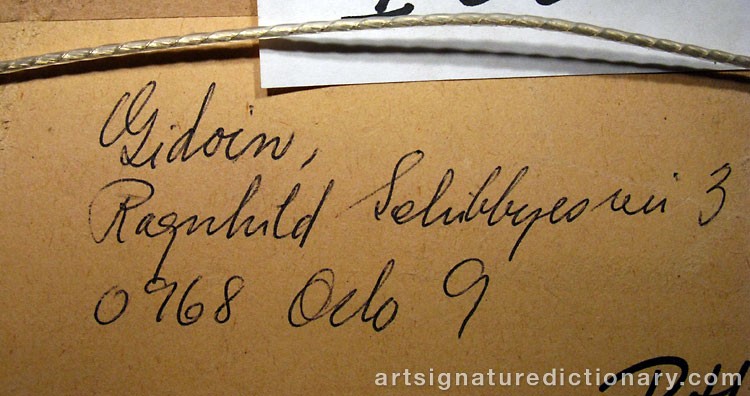 Gidoin,
Ragnhild Schibbyes vei 3
0968 Oslo 9
artsignaturedictionary.com